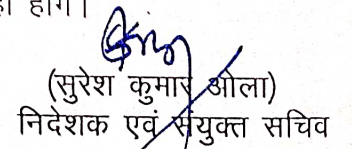 होंगे।
(सुरेश कुमार ओला)
निदेशक एवं संयुक्त सचिव